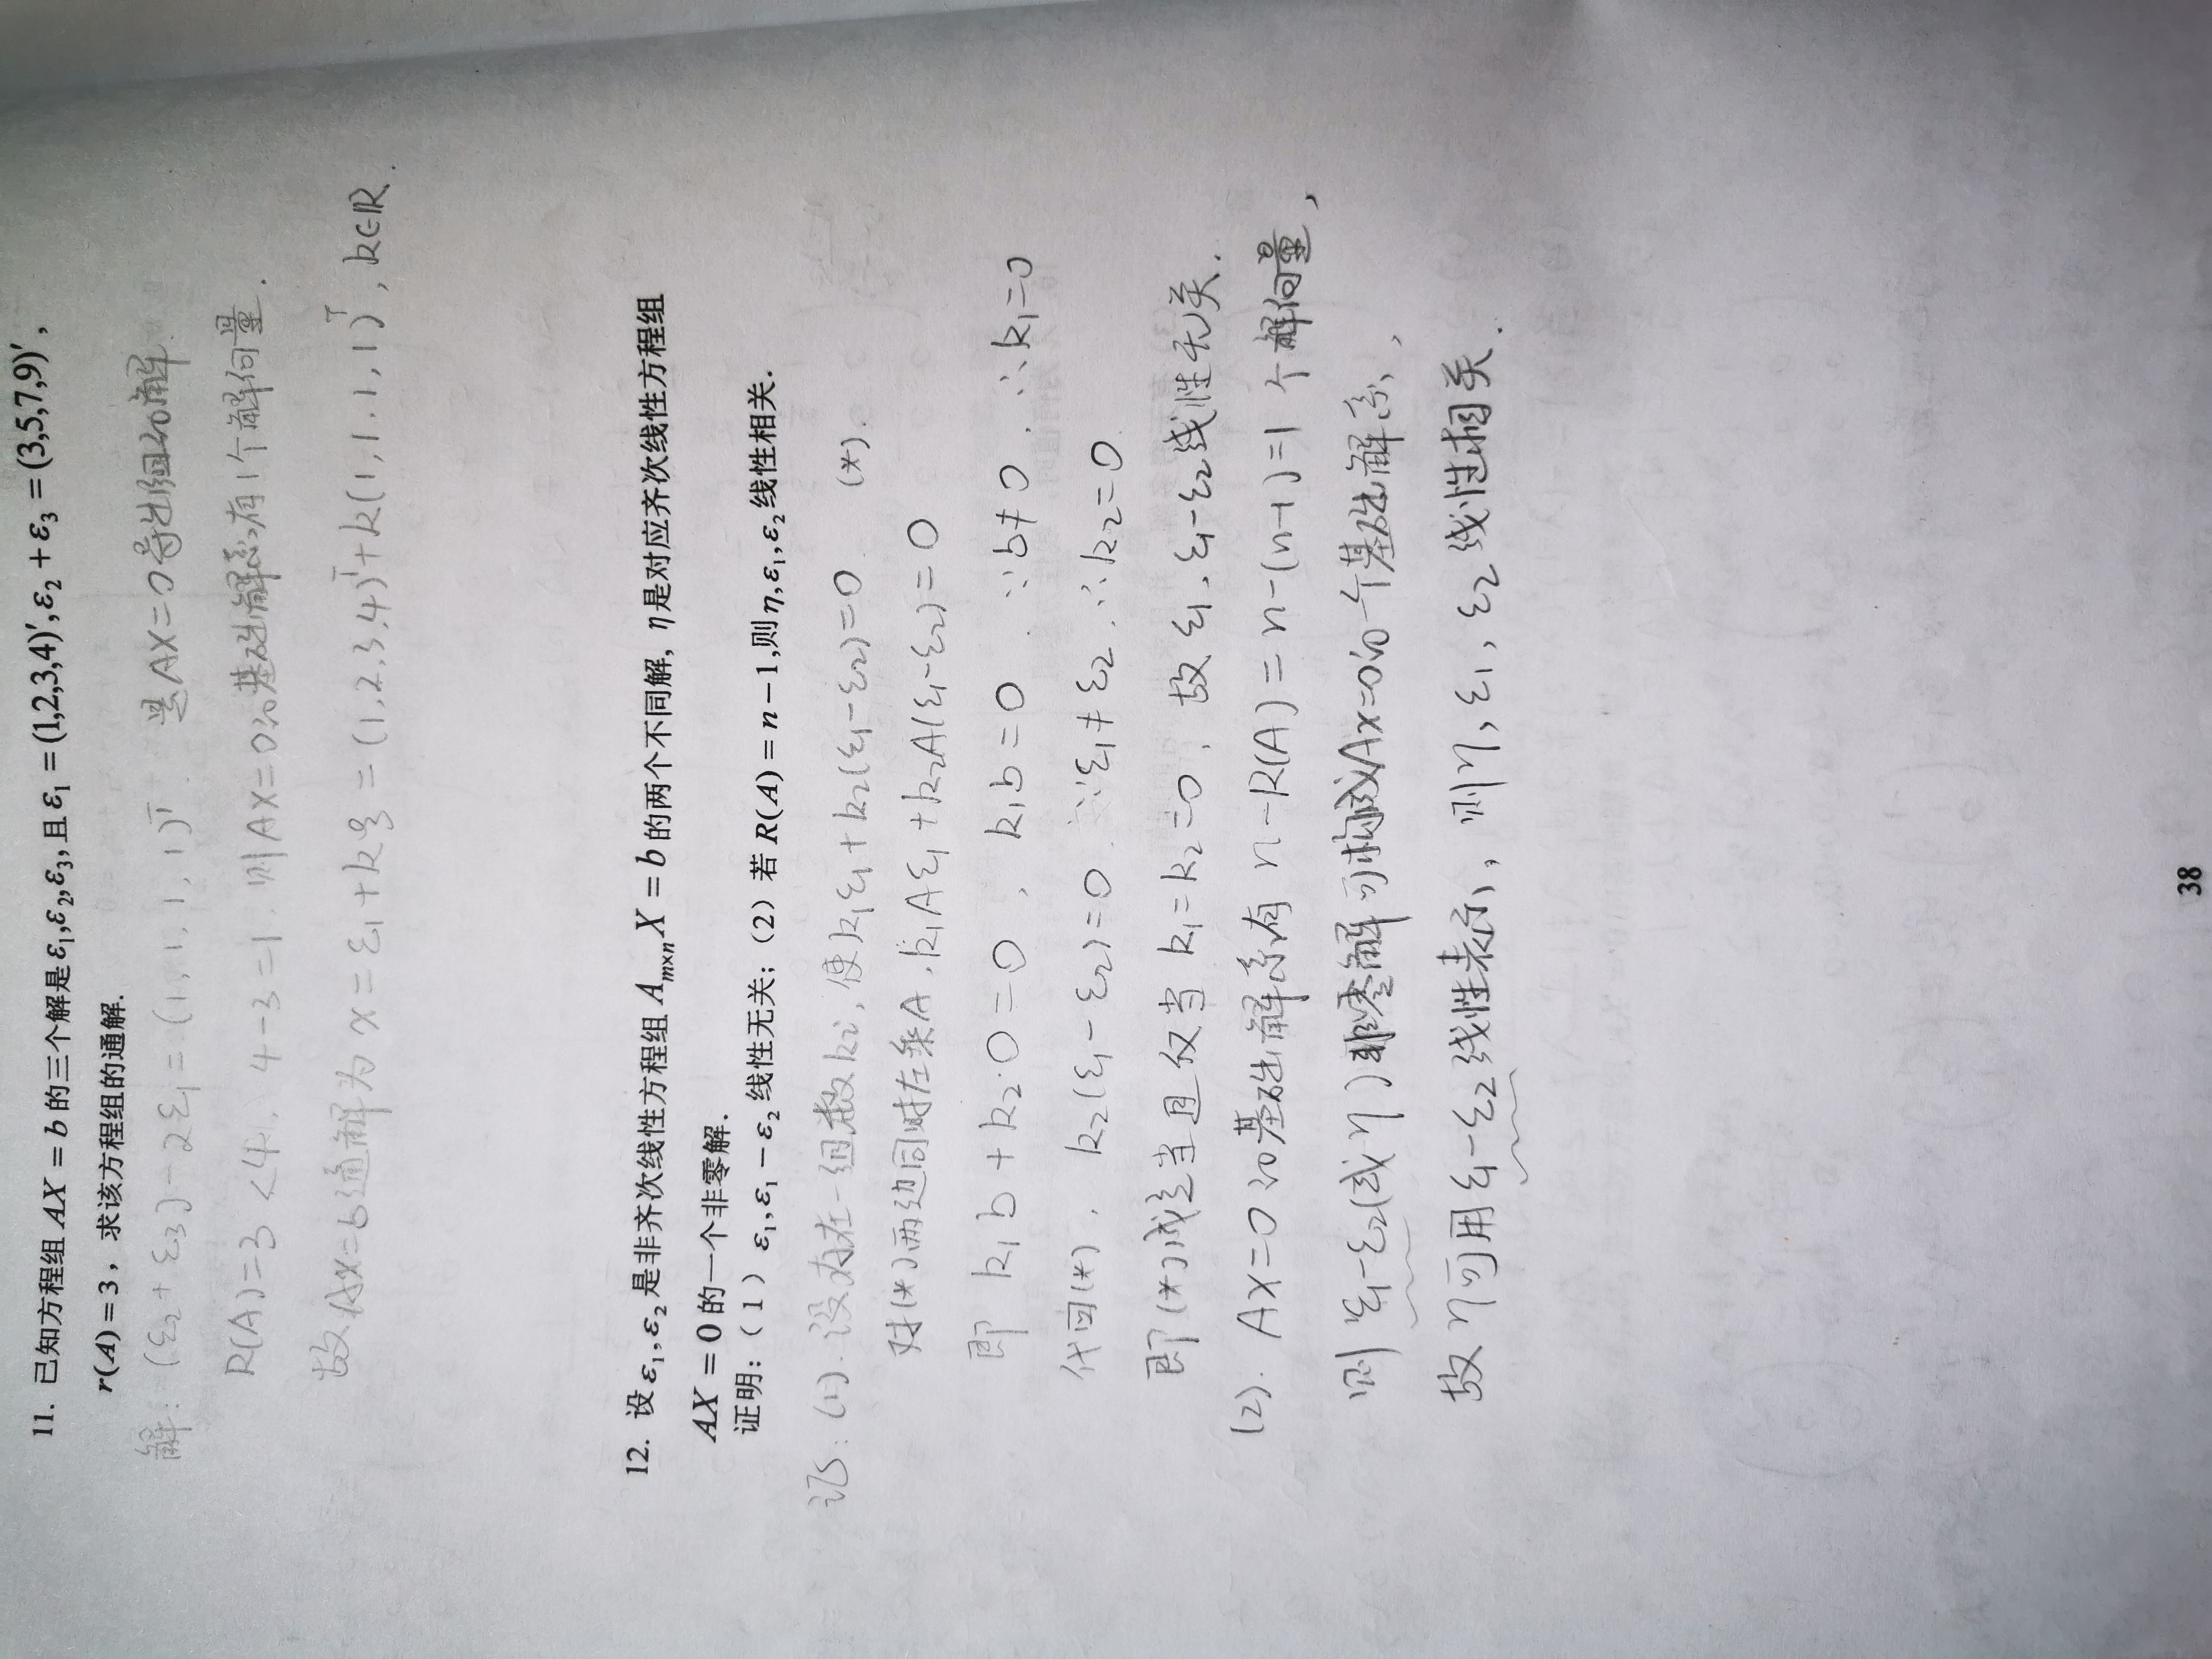 11. 已知方程组 AX = b 的三个解是 ε₁,ε₂,ε₃, 且 ε₁ = (1,2,3,4)′, ε₂ + ε₃ = (3,5,7,9)′,
r(A) = 3，求该方程组的通解.
解: (ε₂ + ε₃) - 2ε₁ = (1, 1, 1, 1)ᵀ. 是AX=0导出组的解.
R(A)=3 <4, 4-3=1. 则AX=0的基础解系有1个解向量.
故AX=b通解为 x = ε₁ + kξ = (1,2,3,4)ᵀ + k(1,1,1,1)ᵀ, k∈R.
12. 设 ε₁,ε₂ 是非齐次线性方程组 Aₘₓₙ X = b 的两个不同解, η是对应齐次线性方程组
AX = 0 的一个非零解.
证明:（1）ε₁,ε₁ - ε₂ 线性无关;（2）若 R(A) = n-1,则 η,ε₁,ε₂ 线性相关.
证: (1). 设存在一组数ki, 使k₁ε₁ + k₂(ε₁-ε₂)=0. (*).
对(*)两边同时左乘A, k₁Aε₁ + k₂A(ε₁-ε₂)=0
即 k₁b + k₂·0 = 0, k₁b = 0. ∵b≠0. ∴k₁=0
代回(*), k₂(ε₁-ε₂)=0. ∵ε₁≠ε₂. ∴k₂=0.
即(*)成立当且仅当 k₁=k₂=0, 故 ε₁, ε₁-ε₂线性无关.
(2). AX=0的基础解系有 n-R(A) = n-(n-1)=1 个解向量,
则 ε₁-ε₂(或η)非零解可构成AX=0的一个基础解系,
故η可用ε₁-ε₂线性表示, 则η, ε₁, ε₂ 线性相关.
38